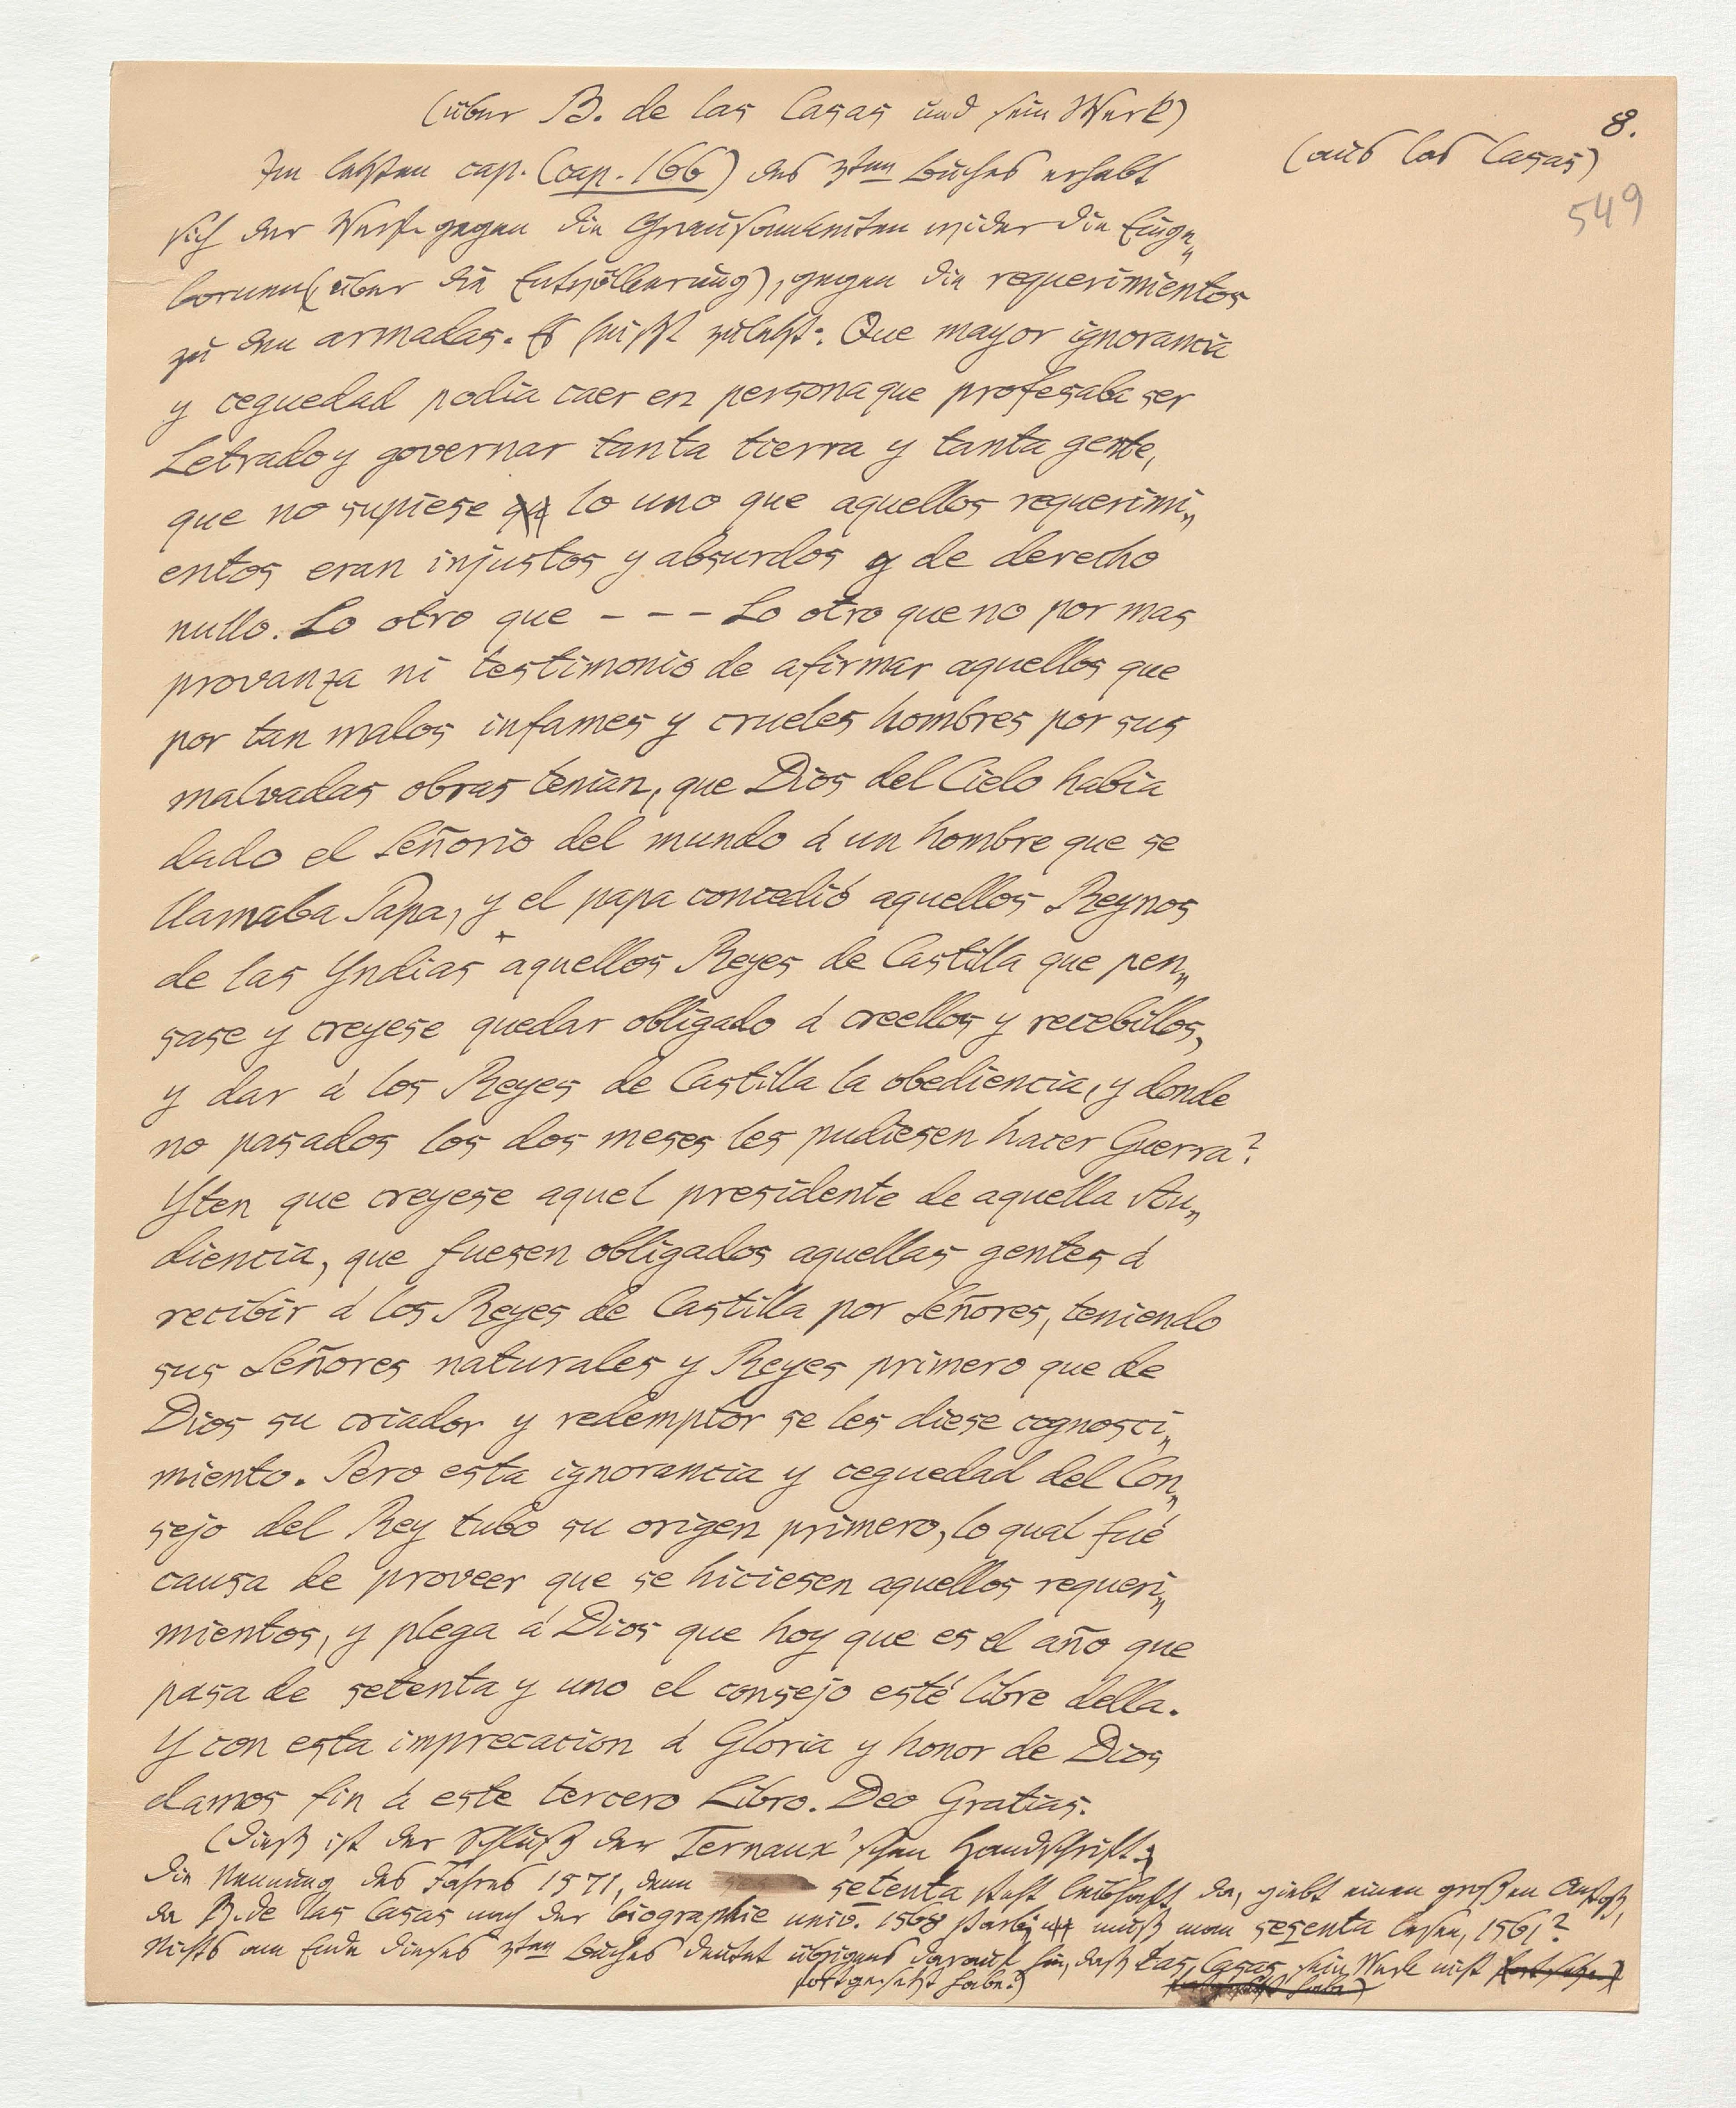 (über B. de las Casas und sein Werk)
8.
(aus las Casas)
549
Im letzten cap. (cap. 166) des 3ten Buches erhebt
sich der Verf. gegen die Grausamkeiten wider die Einge„
bornen (über die Entvölkerung), gegen die requerimientos
zu den armadas. Es heißt zuletzt: Que mayor ignorancia
y ceguedad podia caer en persona que profesaba ser
Letrado y governar tanta tierra y tanta gente,
que no supiese lo uno que aquellos requerimi„
entos eran injustos y absurdos y de derecho
nullo. Lo otro que - - - Lo otro que no por mas
provanza ni testimonio de afirmar aquellos que
por tan malos infames y crueles hombres por sus
malvadas obras tenian, que Dios del Cielo habia
dado el Señorio del mundo á un hombre que se
llamaba Papa, y el papa concedió aquellos Reynos
de las Yndias aquellos Reyes de Castilla que pen„
sase y creyese quedar obligado á creellos y recebillos,
y dar á los Reyes de Castilla la obediencia, y donde
no pasados los dos meses les pudiesen hacer Guerra?
Yten que creyese aquel presidente de aquella Au„
diencia, que fuesen obligados aquellas gentes á
recibir á los Reyes de Castilla por Señores, teniendo
sus Señores naturales y Reyes primero que de
Dios su criador y redemptor se les diese cognosci„
miento. Pero esta ignorancia y ceguedad del Con„
sejo del Rey tubo su origen primero, lo qual fué
causa de proveer que se hiciesen aquellos requeri„
mientos, y plega á Dios que hoy que es el año que
pasa de setenta y uno el consejo esté libre della.
Y con esta imprecacion á Gloria y honor de Dios
damos fin á este tercero Libro. Deo Gratias.
(Dieß ist der Schluß der Ternaux'schen Handschrift.
Die Nennung des Jahres 1571, denn setenta steht leibhaft da, giebt einen großen Anstoß,
da B. de las Casas nach der biographie univ. 1568 starb; muß man sesenta lesen, 1561?
Nichts am Ende dieses 3ten Buches deutet übrigens darauf hin, daß Las Casas sein Werk nicht
fortgesetzt habe.)